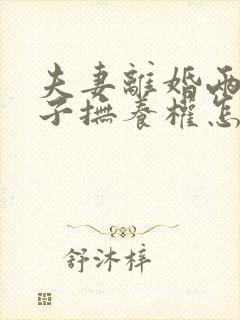 夫妻離婚兩
子撫養權怎
舒沐梓